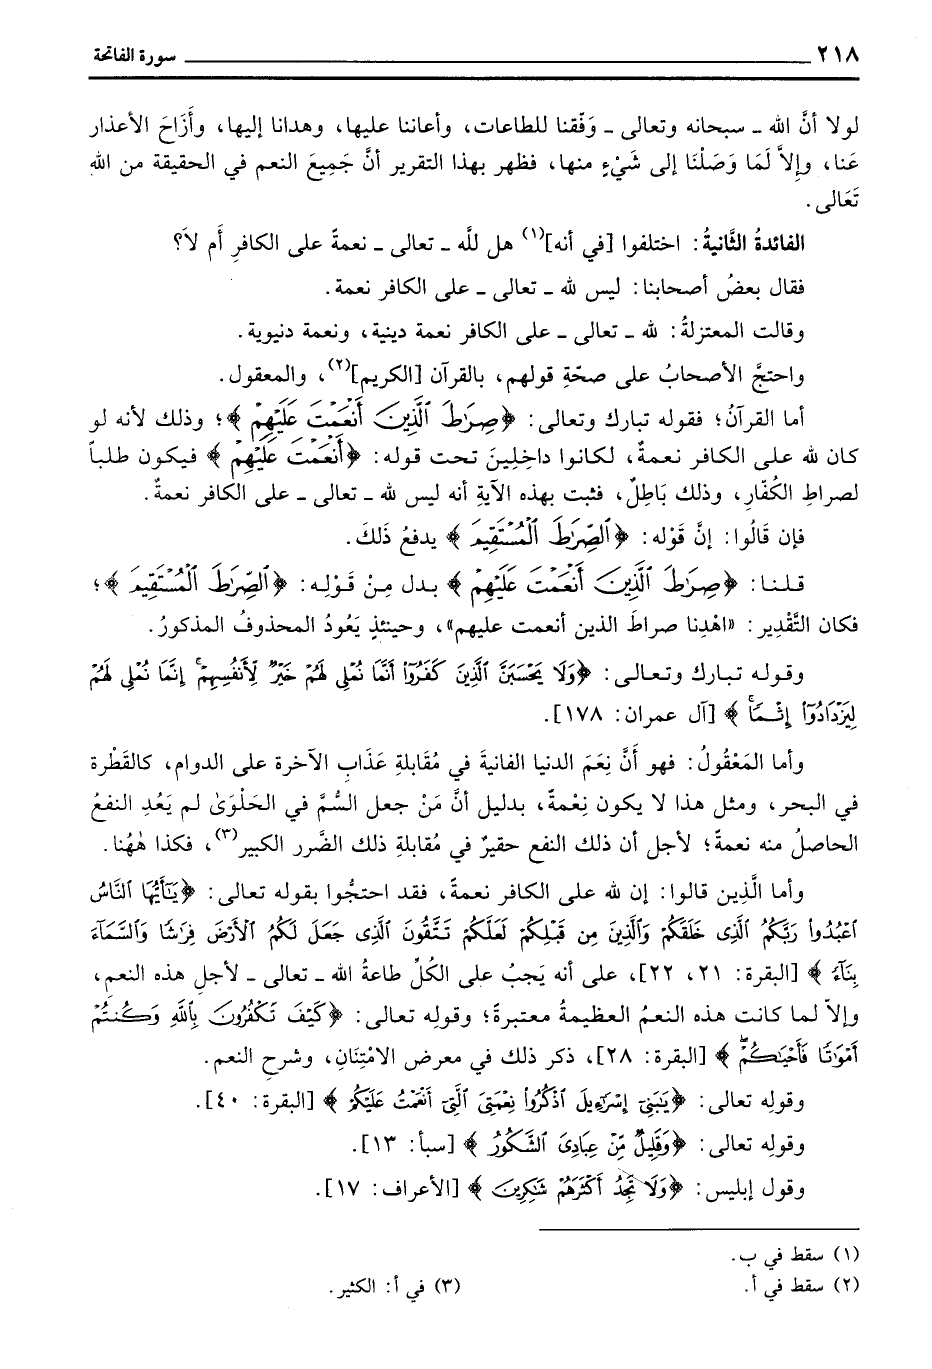 ٢١٨ سورة الفاتحة
لولا أنَّ الله ـ سبحانه وتعالى ـ وَفّقنا للطاعات، وأعاننا عليها، وهدانا إليها، وأَزَاحَ الأعذار
عَنا، وإِلاَّ لَمَا وَصَلْنَا إلى شَيْءٍ منها، فظهر بهذا التقرير أنَّ جَمِيعَ النعم في الحقيقة من الله
تَعَالى.
الفائدةُ الثَّانيةُ: اختلفوا [في أنه](١) هل للَّه ـ تعالى ـ نعمةً على الكافرِ أَم لاَ؟
فقال بعضُ أصحابنا: ليس لله ـ تعالى ـ على الكافر نعمة.
وقالت المعتزلةُ: لله ـ تعالى ـ على الكافر نعمة دينية، ونعمة دنيوية.
واحتجَّ الأصحابُ على صحّةِ قولهم، بالقرآن [الكريم](٢)، والمعقول.
أما القرآنُ؛ فقوله تبارك وتعالى: ﴿صِرَٰطَ ٱلَّذِينَ أَنْعَمْتَ عَلَيْهِمْ﴾؛ وذلك لأنه لو
كان لله على الكافر نعمةٌ، لكانوا داخِلِينَ تحت قوله: ﴿أَنْعَمْتَ عَلَيْهِمْ﴾ فيكون طلباً
لصراطِ الكُفّارِ، وذلك بَاطِلٌ، فثبت بهذه الآيةِ أنه ليس لله ـ تعالى ـ على الكافر نعمةٌ.
فإن قَالُوا: إنَّ قَوْله: ﴿ٱلصِّرَٰطَ ٱلْمُسْتَقِيمَ﴾ يدفعُ ذَلكَ.
قلنا: ﴿صِرَٰطَ ٱلَّذِينَ أَنْعَمْتَ عَلَيْهِمْ﴾ بدل مِنْ قَوْلِه: ﴿ٱلصِّرَٰطَ ٱلْمُسْتَقِيمَ﴾؛
فكان التَّقْدِير: «اهْدِنا صراطَ الذين أنعمت عليهم»، وحينئذٍ يَعُودُ المحذوفُ المذكورُ.
وقوله تبارك وتعالى: ﴿وَلَا يَحْسَبَنَّ ٱلَّذِينَ كَفَرُوٓا۟ أَنَّمَا نُمْلِى لَهُمْ خَيْرٌ لِّأَنفُسِهِمْ ۚ إِنَّمَا نُمْلِى لَهُمْ
لِيَزْدَادُوٓا۟ إِثْمًا ۚ﴾ [آل عمران: ١٧٨].
وأما المَعْقُولُ: فهو أَنَّ نِعَمَ الدنيا الفانيةَ في مُقَابلةِ عَذَابِ الآخرة على الدوام، كالقَطْرة
في البحر، ومثل هذا لا يكون نِعْمةً، بدليل أنَّ مَنْ جعل السُّمَّ في الحَلْوَىٰ لم يَعُدِ النفعُ
الحاصلُ منه نعمةً؛ لأجل أن ذلك النفع حقيرٌ في مُقابلةِ ذلك الضَّرر الكبير(٣)، فكذا هٰهُنا.
وأما الَّذِين قالوا: إن لله على الكافر نعمةً، فقد احتجُّوا بقوله تعالى: ﴿يَـٰٓأَيُّهَا ٱلنَّاسُ
ٱعْبُدُوا۟ رَبَّكُمُ ٱلَّذِى خَلَقَكُمْ وَٱلَّذِينَ مِن قَبْلِكُمْ لَعَلَّكُمْ تَتَّقُونَ ٱلَّذِى جَعَلَ لَكُمُ ٱلْأَرْضَ فِرَٰشًا وَٱلسَّمَآءَ
بِنَآءً﴾ [البقرة: ٢١، ٢٢]، على أنه يَجبُ على الكُلِّ طاعةُ الله ـ تعالى ـ لأجلِ هذه النعم،
وإلاّ لما كانت هذه النعمُ العظيمةُ معتبرةً؛ وقولِه تعالى: ﴿كَيْفَ تَكْفُرُونَ بِٱللَّهِ وَكُنتُمْ
أَمْوَٰتًا فَأَحْيَـٰكُمْ ۖ﴾ [البقرة: ٢٨]، ذكر ذلك في معرض الامْتِنَانِ، وشرحِ النعم.
وقولِه تعالى: ﴿يَـٰبَنِىٓ إِسْرَٰٓءِيلَ ٱذْكُرُوا۟ نِعْمَتِىَ ٱلَّتِىٓ أَنْعَمْتُ عَلَيْكُمْ﴾ [البقرة: ٤٠].
وقولِه تعالى: ﴿وَقَلِيلٌ مِّنْ عِبَادِىَ ٱلشَّكُورُ﴾ [سبأ: ١٣].
وقول إبليس: ﴿وَلَا تَجِدُ أَكْثَرَهُمْ شَـٰكِرِينَ﴾ [الأعراف: ١٧].
(١) سقط في ب.
(٢) سقط في أ. (٣) في أ: الكثير.